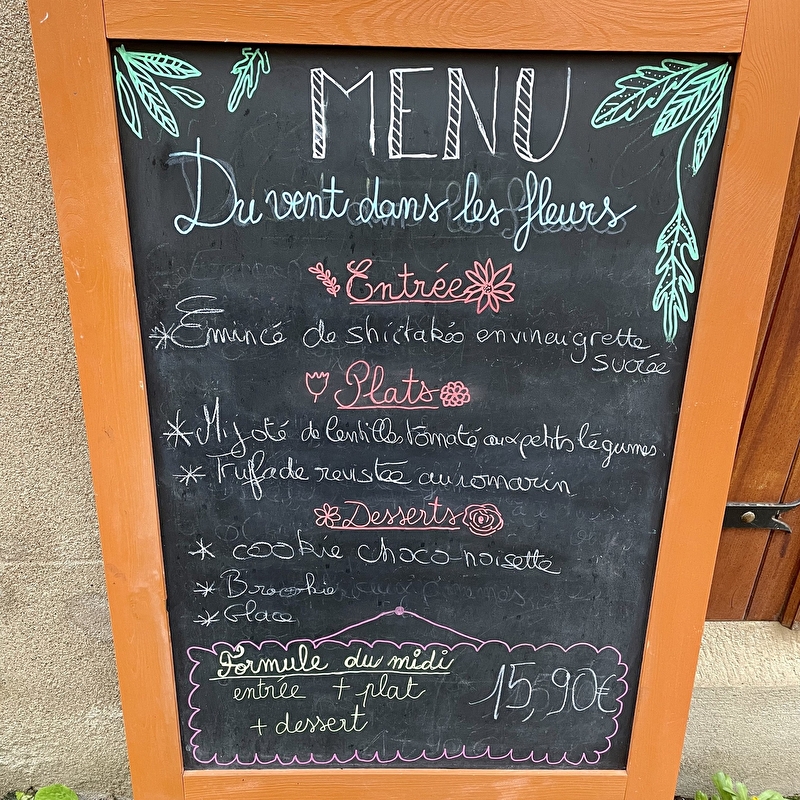 MENU
Du vent dans les fleurs
Entrée
* Emincé de shiitakés en vineuigrette
sucrée
Plats
* Mijoté de lentilles tomaté aux petits légumes.
* Truffade revistée au romarin
Desserts
* cookie choco-noisette
* Brookie
* Glace
Formule du midi
entrée + plat
+ dessert
15,90€